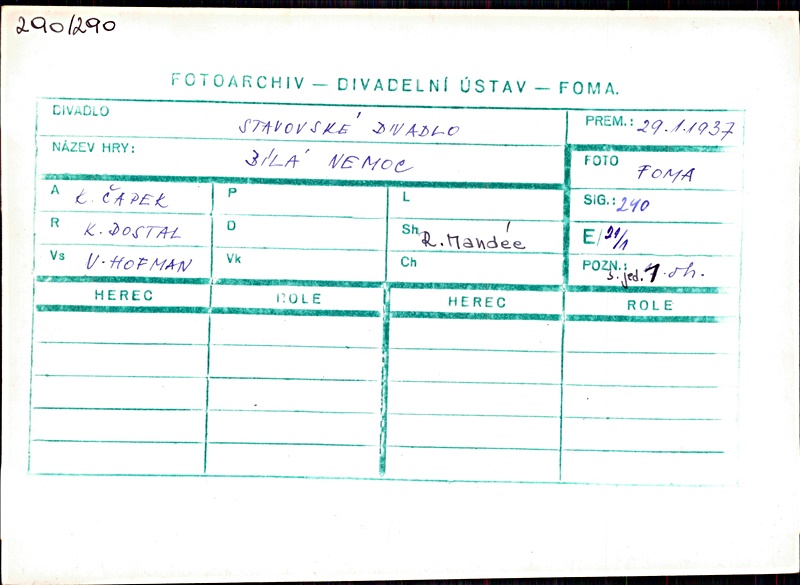 290/290
FOTOARCHIV — DIVADELNÍ ÚSTAV — FOMA.
DIVADLO STAVOVSKÉ DIVADLO PREM.: 29.1.1937
NÁZEV HRY: BÍLÁ NEMOC FOTO FOMA
A K. ČAPEK P L SIG.: 290
R K. DOSTAL D Sh R. Mandée E/
Vs V. HOFMAN Vk Ch POZN.: jed. 1. oh.
HEREC ROLE HEREC ROLE